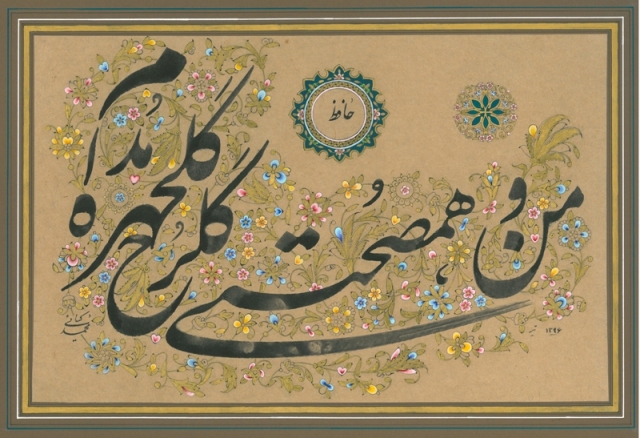 حافظ
من و همصحبتی گلرخ گلچهره مدام
۱۳۹۶